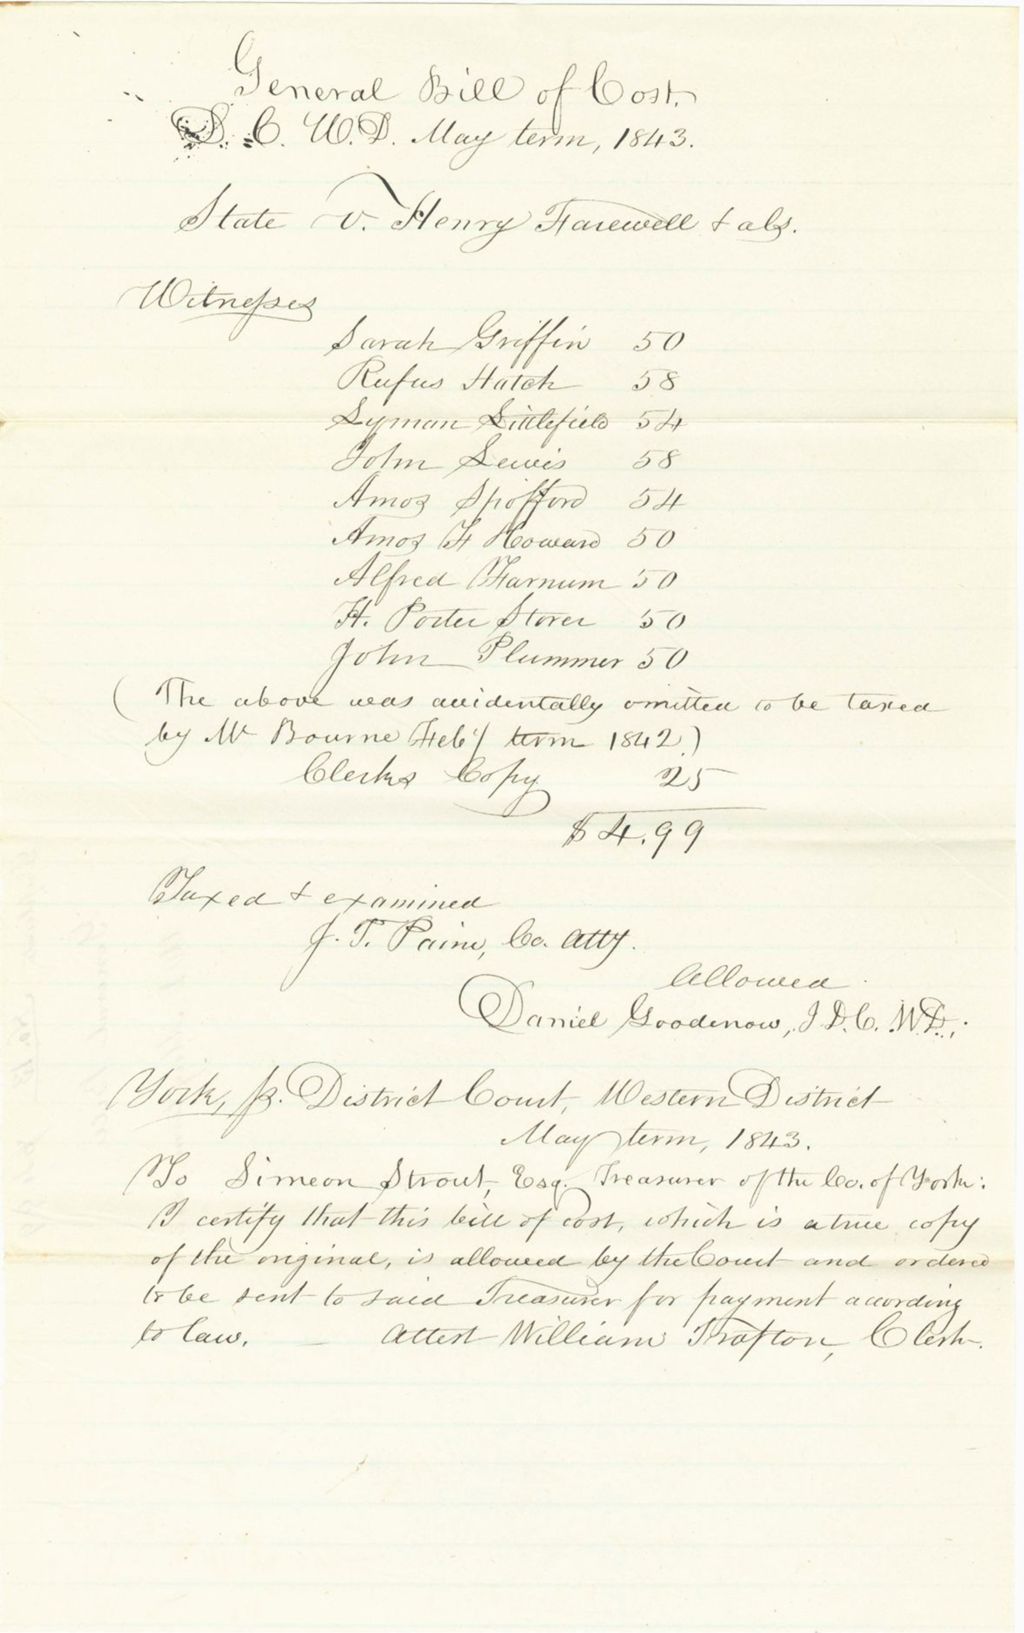 General Bill of Cost.
D. C. W. D. May term, 1843.
State v. Henry Farewell & als.
Witnesses
Sarah Griffin 50
Rufus Hatch 58
Lyman Littlefield 54
John Lewis 58
Amos Spofford 54
Amos F Howard 50
Alfred Farnum 50
H. Porter Storer 50
John Plummer 50
(The above was accidentally omitted to be taxed
by Mr Bourne Feby term 1842.)
Clerks Copy 25
$4.99
Taxed & examined
J. T. Paine, Co. Atty.
Allowed
Daniel Goodenow, J. D. C. W. D.;
York, ss. District Court, Western District
May term, 1843.
To Simeon Strout, Esq. Treasurer of the Co. of York:
I certify that this bill of cost, which is a true copy
of the original, is allowed by the Court and ordered
to be sent to said Treasurer for payment according
to law. Attest William Trafton, Clerk.